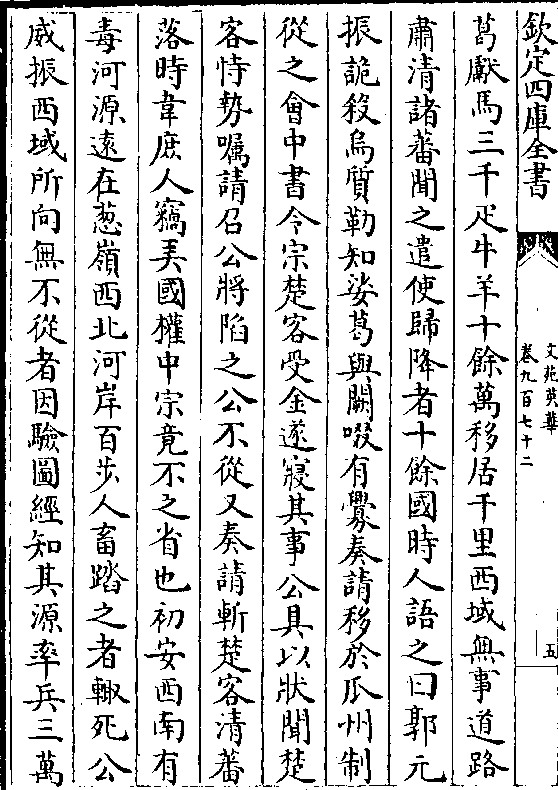 欽定四庫全書
文苑英華
卷九百七十二
五
葛獻馬三千疋牛羊十餘萬移居千里西域無事道路
肅清諸蕃聞之遣使歸降者十餘國時人語之曰郭元
振詭殺烏質勒知娑葛與闕啜有釁奏請移於瓜州制
從之會中書令宗楚客受金遂寢其事公具以狀聞楚
客恃勢囑請召公將陷之公不從又奏請斬楚客清蕃
落時韋庶人竊弄國權中宗竟不之省也初安西南有
毒河源遠在葱嶺西北河岸百步人畜踏之者輙死公
威振西域所向無不從者因驗圖經知其源率兵三萬